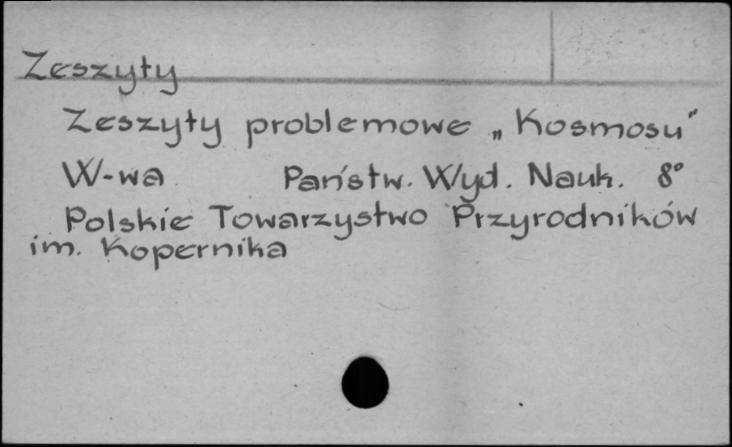 Zeszyty
Zeszyty problemowe „Kosmosu"
W-wa Państw. Wyd. Nauk. 8°
Polskie Towarzystwo Przyrodników
im. Kopernika